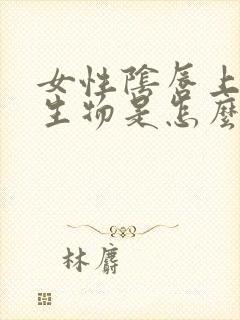 女性陰唇上
生物是怎麼
林麝